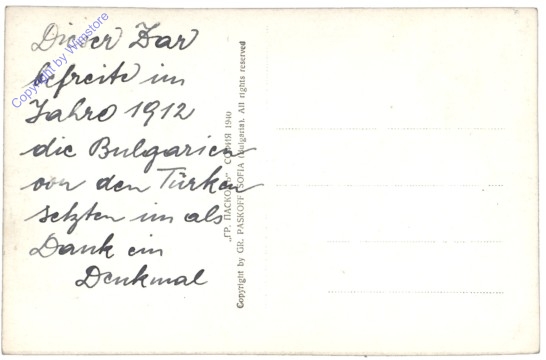 Dieser Zar
befreite im
Jahre 1912
die Bulgarien
von den Türken
setzten im als
Dank ein
Denkmal
„ГР. ПАСКОВЪ“ СОФИЯ 1940
Copyright by GR. PASKOFF SOFIA (Bulgaria). All rights reserved
Copyright by Wimstore